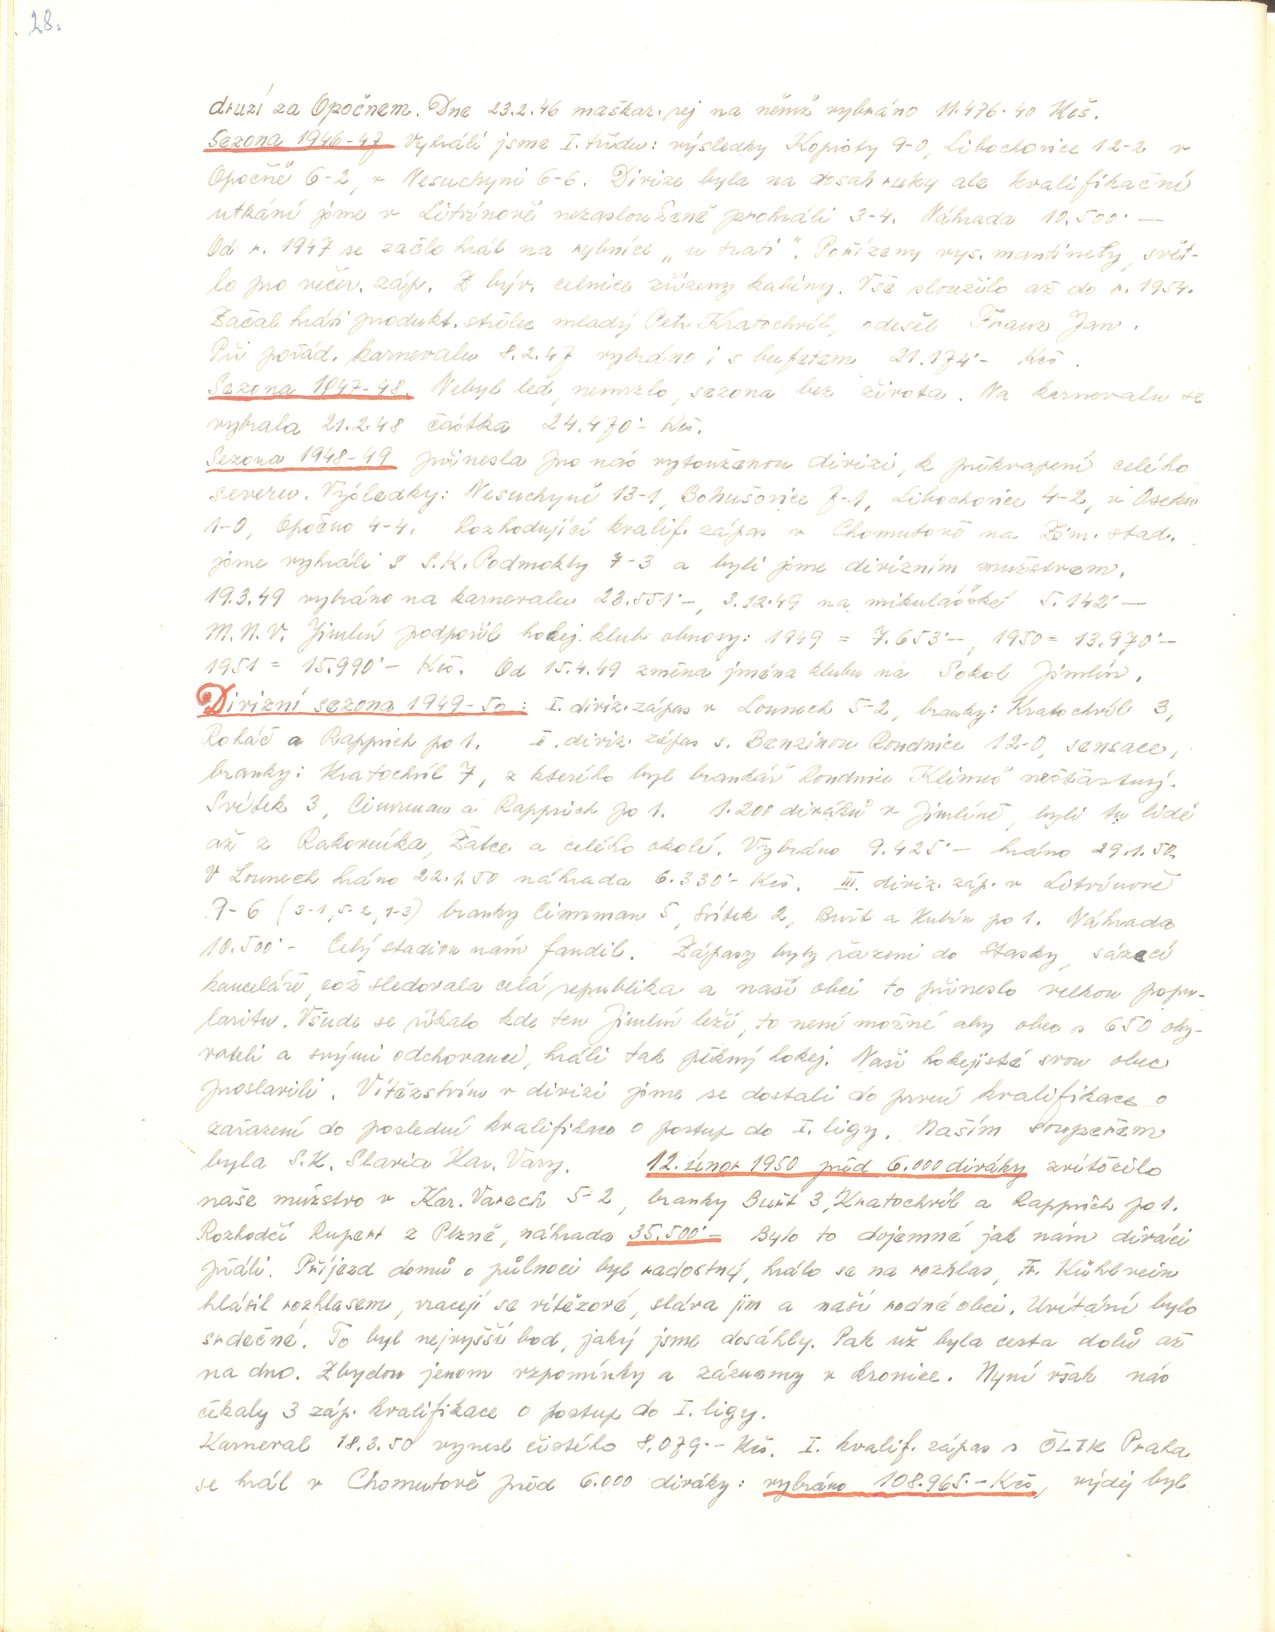 28.
druzí za Opočnem. Dne 23.2.46 maškar. rej na němž vybráno 11.476.40 Kčs.
Sezona 1946-47 Vyhráli jsme I. třídu: výsledky Kopisty 9-0, Libochovice 12-2 v
Opočně 6-2, v Nesuchyni 6-6. Divize byla na dosah ruky ale kvalifikační
utkání jsme v Litvínově nezaslouženě prohráli 3-4. Náhrada 10.500·—
Od r. 1947 se začlo hrát na rybníce „u trati". Pořízeny vys. mantinely, svět-
lo pro večer. záp. Z býv. celnice zřízeny kabiny. Vše sloužilo až do r. 1954.
Začal hráti produkt. střelec mladý Petr Kratochvíl, odešel Franz Jan.
Při pořád. karnevalu 8.2.47 vybráno i s bufetem 21.174·- Kčs.
Sezona 1947-48. Nebyl led, nemrzlo, sezona bez života. Na karnevalu se
vybrala 21.2.48 částka 24.470·- Kčs.
Sezona 1948-49 přinesla pro nás vytouženou divizi, k překvapení celého
severu. Výsledky: Nesuchyně 13-1, Bohušovice 7-1, Libochovice 4-2, v Oseku
1-0, Opočno 4-4. Rozhodující kvalif. zápas v Chomutově na Zim. stad.
jsme vyhráli s S.K. Podmokly 7-3 a byli jsme divizním mužstvem.
19.3.49 vybráno na karnevalu 23.551·-, 3.12.49 na mikulášské 5.142·—
M.N.V. Jimlín podpořil hokej. klub obnosy: 1949 = 7.653·-, 1950 = 13.970·-
1951 = 15.990·- Kčs. Od 15.4.49 změna jména klubu na Sokol Jimlín.
Divizní sezona 1949-50: I. diviz. zápas v Lounech 5-2, branky: Kratochvíl 3,
Roháč a Rappich po 1. II. diviz. zápas s. Benzinou Roudnice 12-0, sensace,
branky: Kratochvíl 7, z kterého byl brankář Roudnice Klimeš nešťastný.
Svítek 3, Cimrman a Rappich po 1. 1.200 diváků v Jimlíně, byli tu lidé
až z Rakovníka, Žatce a celého okolí. Vybráno 9.425·- hráno 29.1.50.
V Lounech hráno 22.1.50 náhrada 6.330·- Kčs. III. diviz. záp. v Litvínově
9-6 (3-1, 5-2, 1-3) branky Cimrman 5, Svítek 2, Burt a Kubín po 1. Náhrada
10.500·- Celý stadion nám fandil. Zápasy byly řazeni do Stasky, sázecí
kanceláře, což sledovala celá republika a naší obci to přineslo velkou popu-
laritu. Všude se říkalo kde ten Jimlín leží, to není možné aby obec s 650 oby-
vateli a svými odchovanci, hráli tak pěkný hokej. Naši hokejisté svou obec
proslavili. Vítězstvím v divizi jsme se dostali do první kvalifikace o
zařazení do poslední kvalifikace o postup do I. ligy. Naším soupeřem
byla S.K. Slavia Kar. Vary. 12. únor 1950 před 6.000 diváky zvítězilo
naše mužstvo v Kar. Varech 5-2, branky Burt 3, Kratochvíl a Rappich po 1.
Rozhodčí Rupert z Plzně, náhrada 35.500·- Bylo to dojemné jak nám diváci
přáli. Příjezd domů o půlnoci byl radostný, hrálo se na rozhlas, Fr. Kühlwein
hlásil rozhlasem, vracejí se vítězové, sláva jim a naší rodné obci. Uvítání bylo
srdečné. To byl nejvyšší bod, jaký jsme dosáhly. Pak už byla cesta dolů až
na dno. Zbydou jenom vzpomínky a záznamy v kronice. Nyní však nás
čekaly 3 záp. kvalifikace o postup do I. ligy.
Karneval 18.3.50 vynesl čistého 8.079.- Kčs. I. kvalif. zápas s ČLTK Praha
se hrál v Chomutově před 6.000 diváky: vybráno 108.965.- Kčs, výdej byl